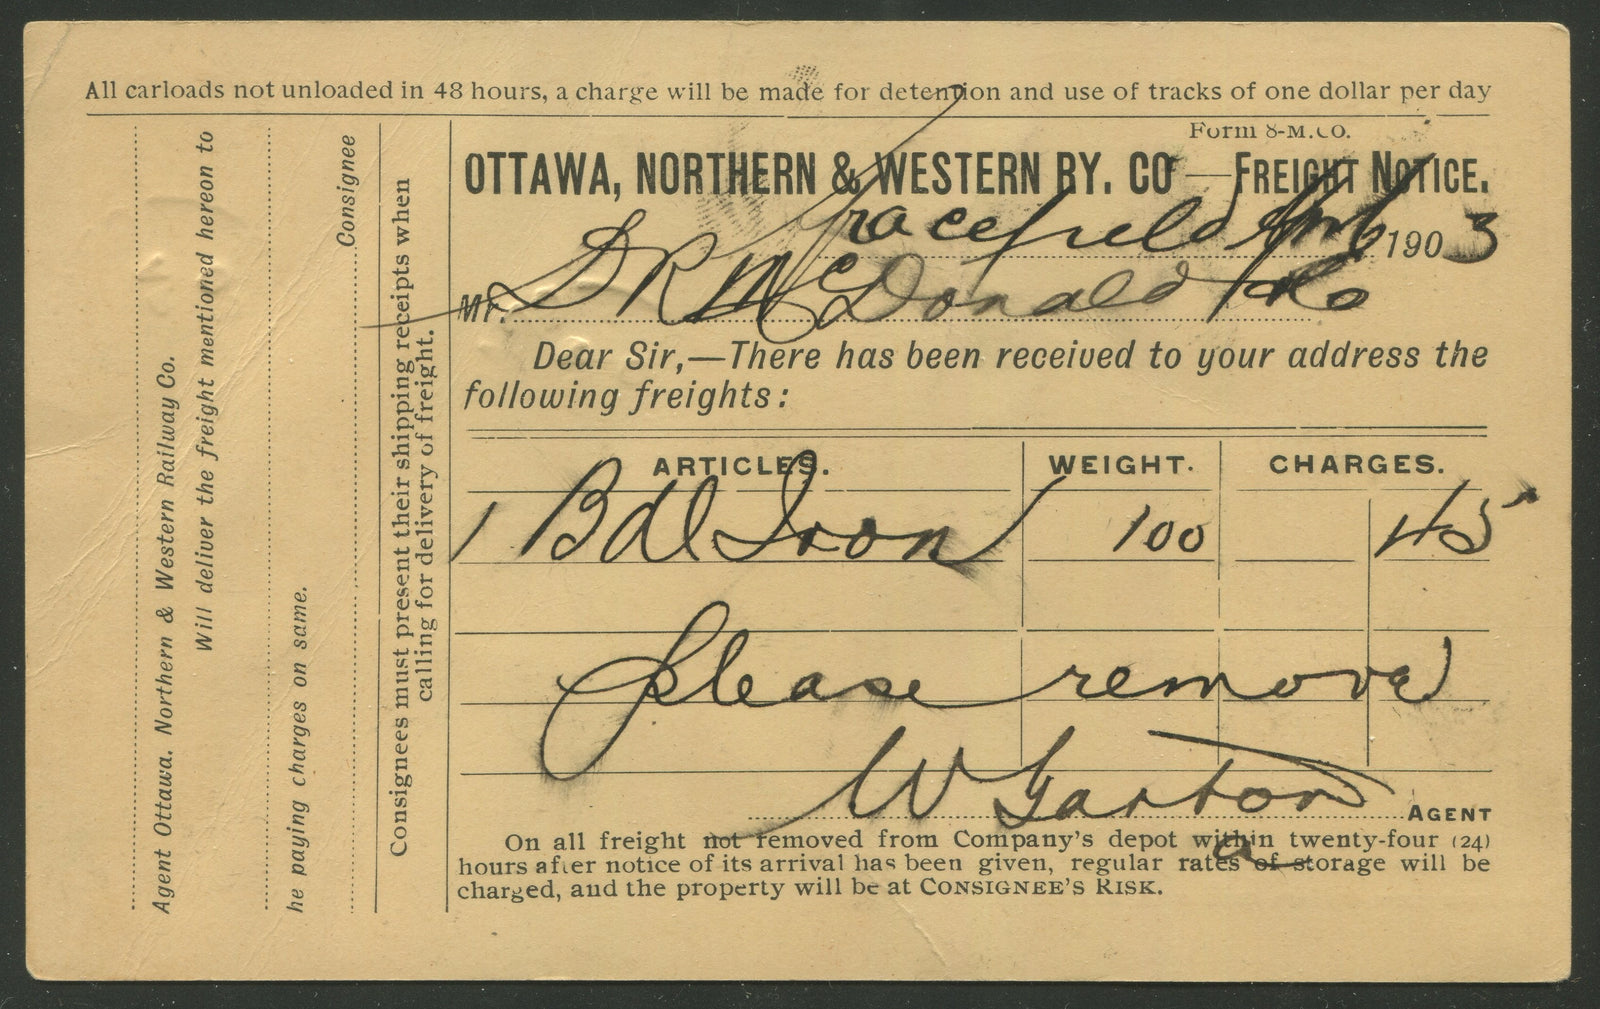 All carloads not unloaded in 48 hours, a charge will be made for detention and use of tracks of one dollar per day
Form 8-M.CO.
OTTAWA, NORTHERN & WESTERN RY. CO — FREIGHT NOTICE.
Gracefield 1903
Mr. D R McDonald & Co
Dear Sir,—There has been received to your address the
following freights:
ARTICLES. WEIGHT. CHARGES.
1 Bdl Iron 100 45
please remove
W Garton AGENT
On all freight not removed from Company's depot within twenty-four (24)
hours after notice of its arrival has been given, regular rates of storage will be
charged, and the property will be at CONSIGNEE'S RISK.
Consignees must present their shipping receipts when
calling for delivery of freight.
Agent Ottawa. Northern & Western Railway Co.
Will deliver the freight mentioned hereon to
he paying charges on same.
Consignee